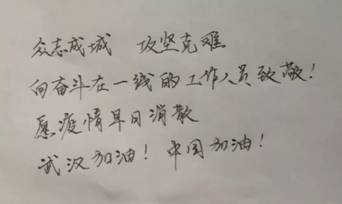 众志成城 攻坚克难
向奋斗在一线的工作人员致敬!
愿疫情早日消散
武汉加油! 中国加油!